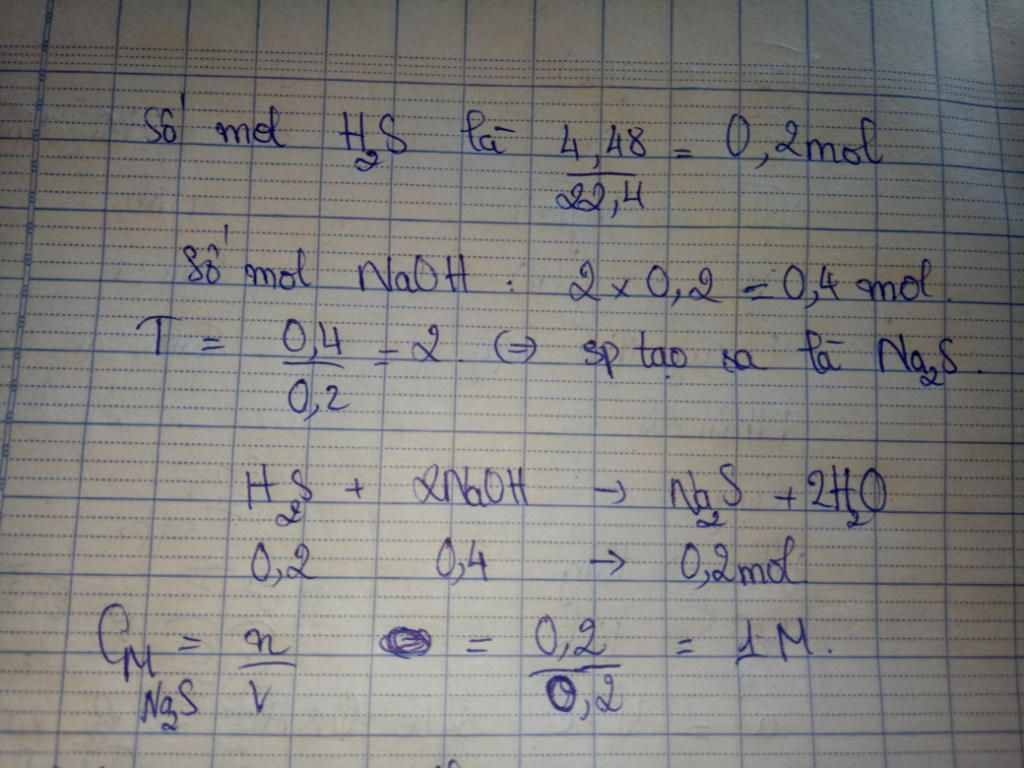 Số mol H₂S là 4,48/22,4 = 0,2 mol
Số mol NaOH : 2 × 0,2 = 0,4 mol.
T = 0,4/0,2 = 2. (=> sp tạo ra là Na₂S.
H₂S + 2NaOH → Na₂S + 2H₂O
0,2 0,4 → 0,2 mol
C_M Na₂S = n/V = 0,2/0,2 = 1M.